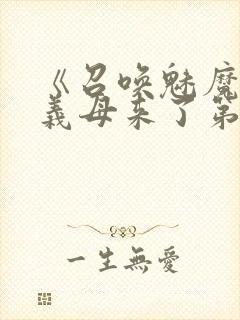 《召唤魅魔
義母来了第
一生無愛